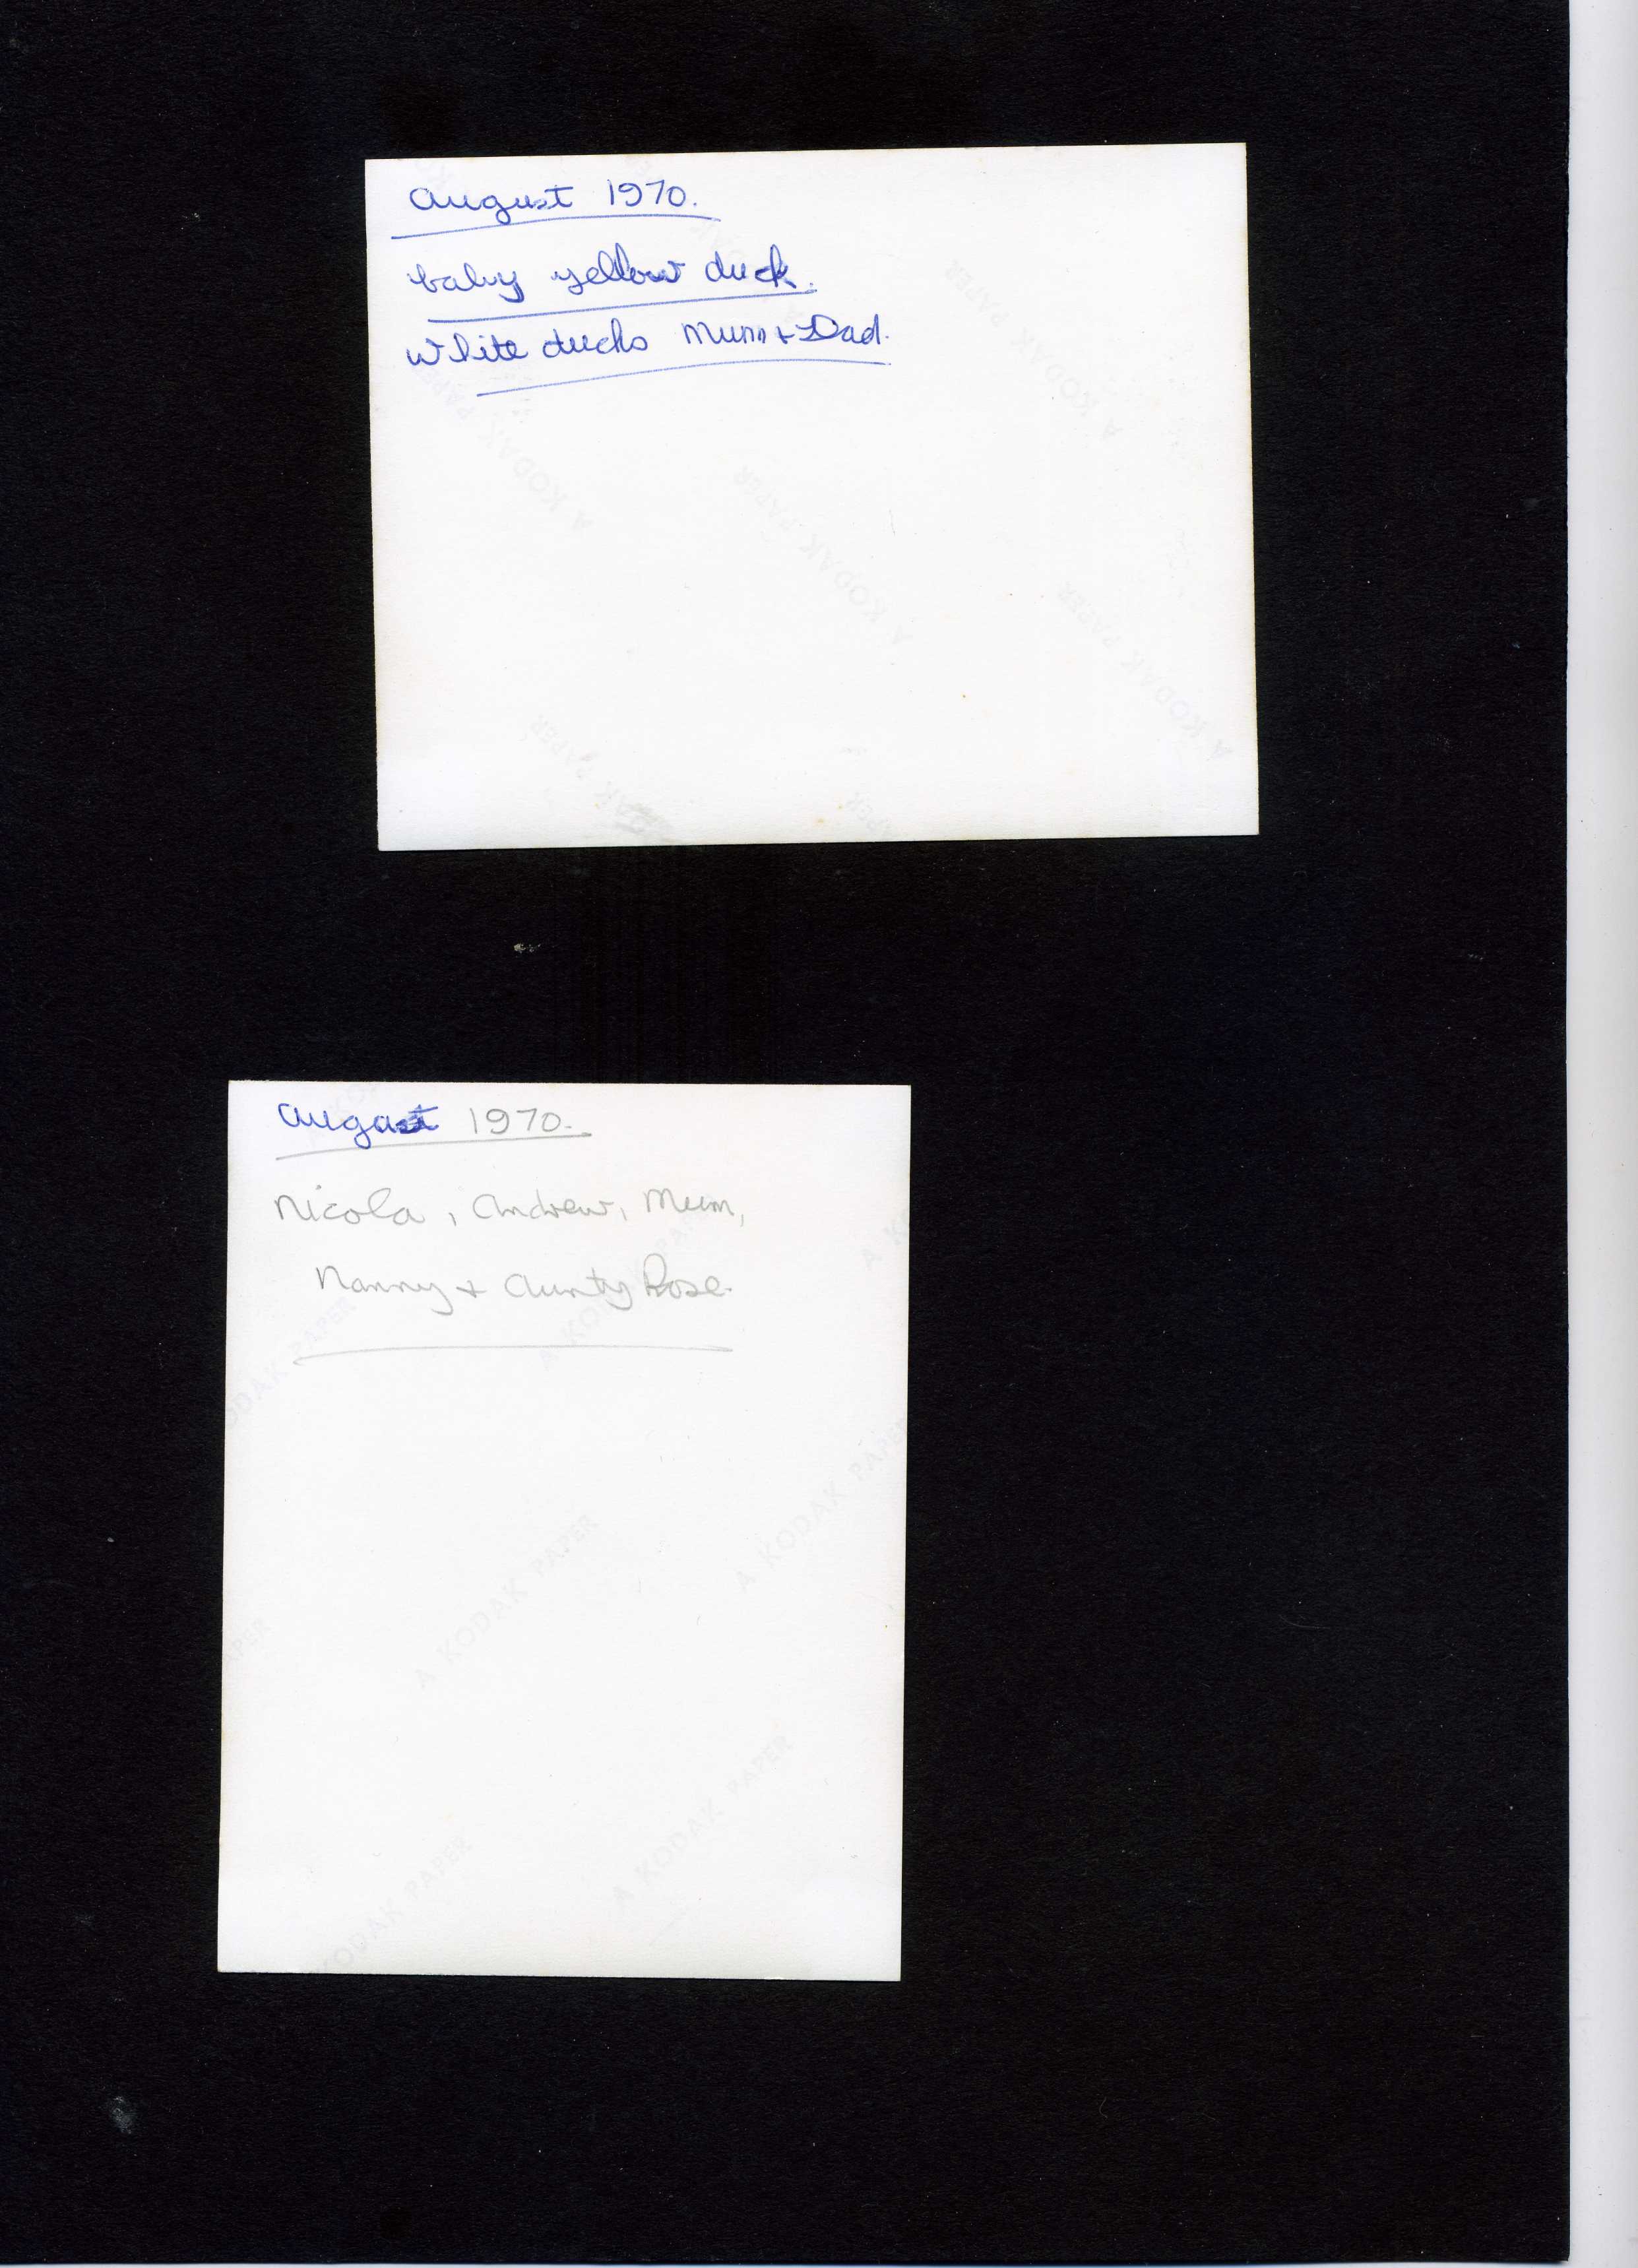 August 1970.
baby yellow duck.
White ducks Mum + Dad.
A KODAK PAPER
A KODAK PAPER
A KODAK PAPER
A KODAK PAPER
August 1970.
Nicola, Andrew, Mum,
Nanny + Aunty Rose.
A KODAK PAPER
KODAK PAPER
A KODAK PAPER
A KODAK PAPER
A KODAK PAPER
KODAK PAPER